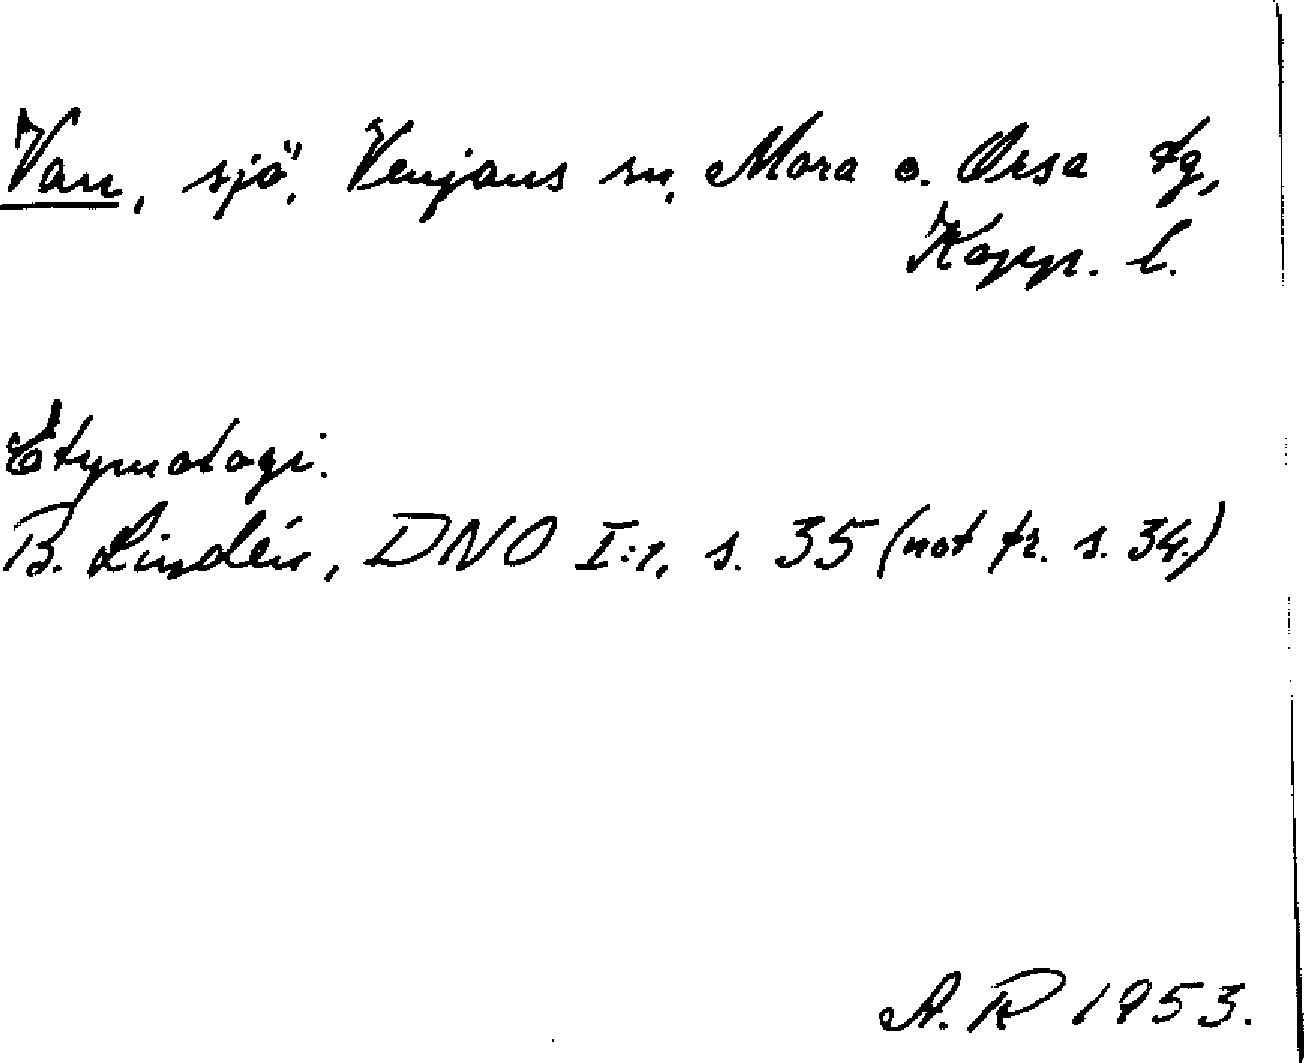 Van, sjö, Venjans sn, Mora o. Orsa tg,
Kopp. l.
Etymologi.
B. Lindén, DNO I:1, s. 35 (not fr. s. 34.)
A. R 1953.